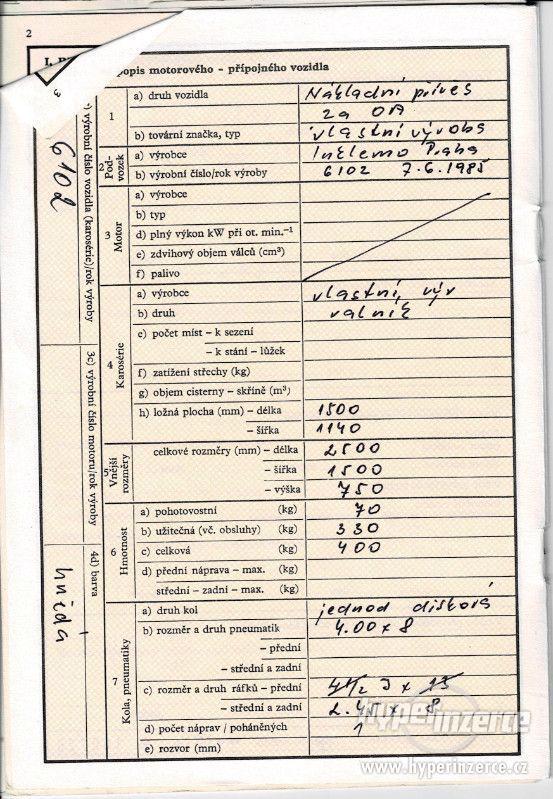 2
popis motorového – přípojného vozidla
1
a) druh vozidla Nákladní přívěs
za OA
b) tovární značka, typ vlastní výroba
2 Podvozek
a) výrobce Inklemo Praha
b) výrobní číslo/rok výroby 6102 7.6.1985
3 Motor
a) výrobce
b) typ
d) plný výkon kW při ot. min.⁻¹
e) zdvihový objem válců (cm³)
f) palivo
4 Karosérie
a) výrobce vlastní, výr
b) druh valník
e) počet míst – k sezení
– k stání – lůžek
f) zatížení střechy (kg)
g) objem cisterny – skříně (m³)
h) ložná plocha (mm) – délka 1500
– šířka 1140
5 Vnější rozměry
celkové rozměry (mm) – délka 2500
– šířka 1500
– výška 750
6 Hmotnost
a) pohotovostní (kg) 70
b) užitečná (vč. obsluhy) (kg) 330
c) celková (kg) 400
d) přední náprava – max. (kg)
střední – zadní – max. (kg)
7 Kola, pneumatiky
a) druh kol jednod disková
b) rozměr a druh pneumatik 4.00 x 8
– přední
– střední a zadní
c) rozměr a druh ráfků – přední 4 1/2 J x 13
– střední a zadní 2.45 x 8
d) počet náprav / poháněných 1
e) rozvor (mm)
) výrobní číslo vozidla (karosérie)/rok výroby
6102
3c) výrobní číslo motoru/rok výroby
4d) barva
hnědá
hyperinzerce
www.hyperinzerce.cz